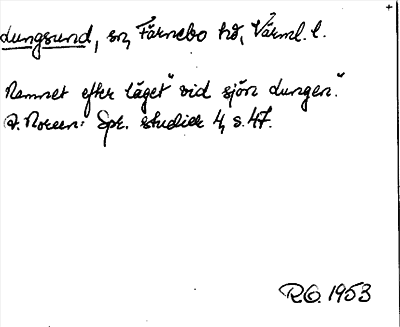 Lungsund, sn, Färnebo hd, Värml. l.
Namnet efter läget "vid sjön Lungen."
A. Noreen: Spr. studier 4, s. 47.
R.O. 1953